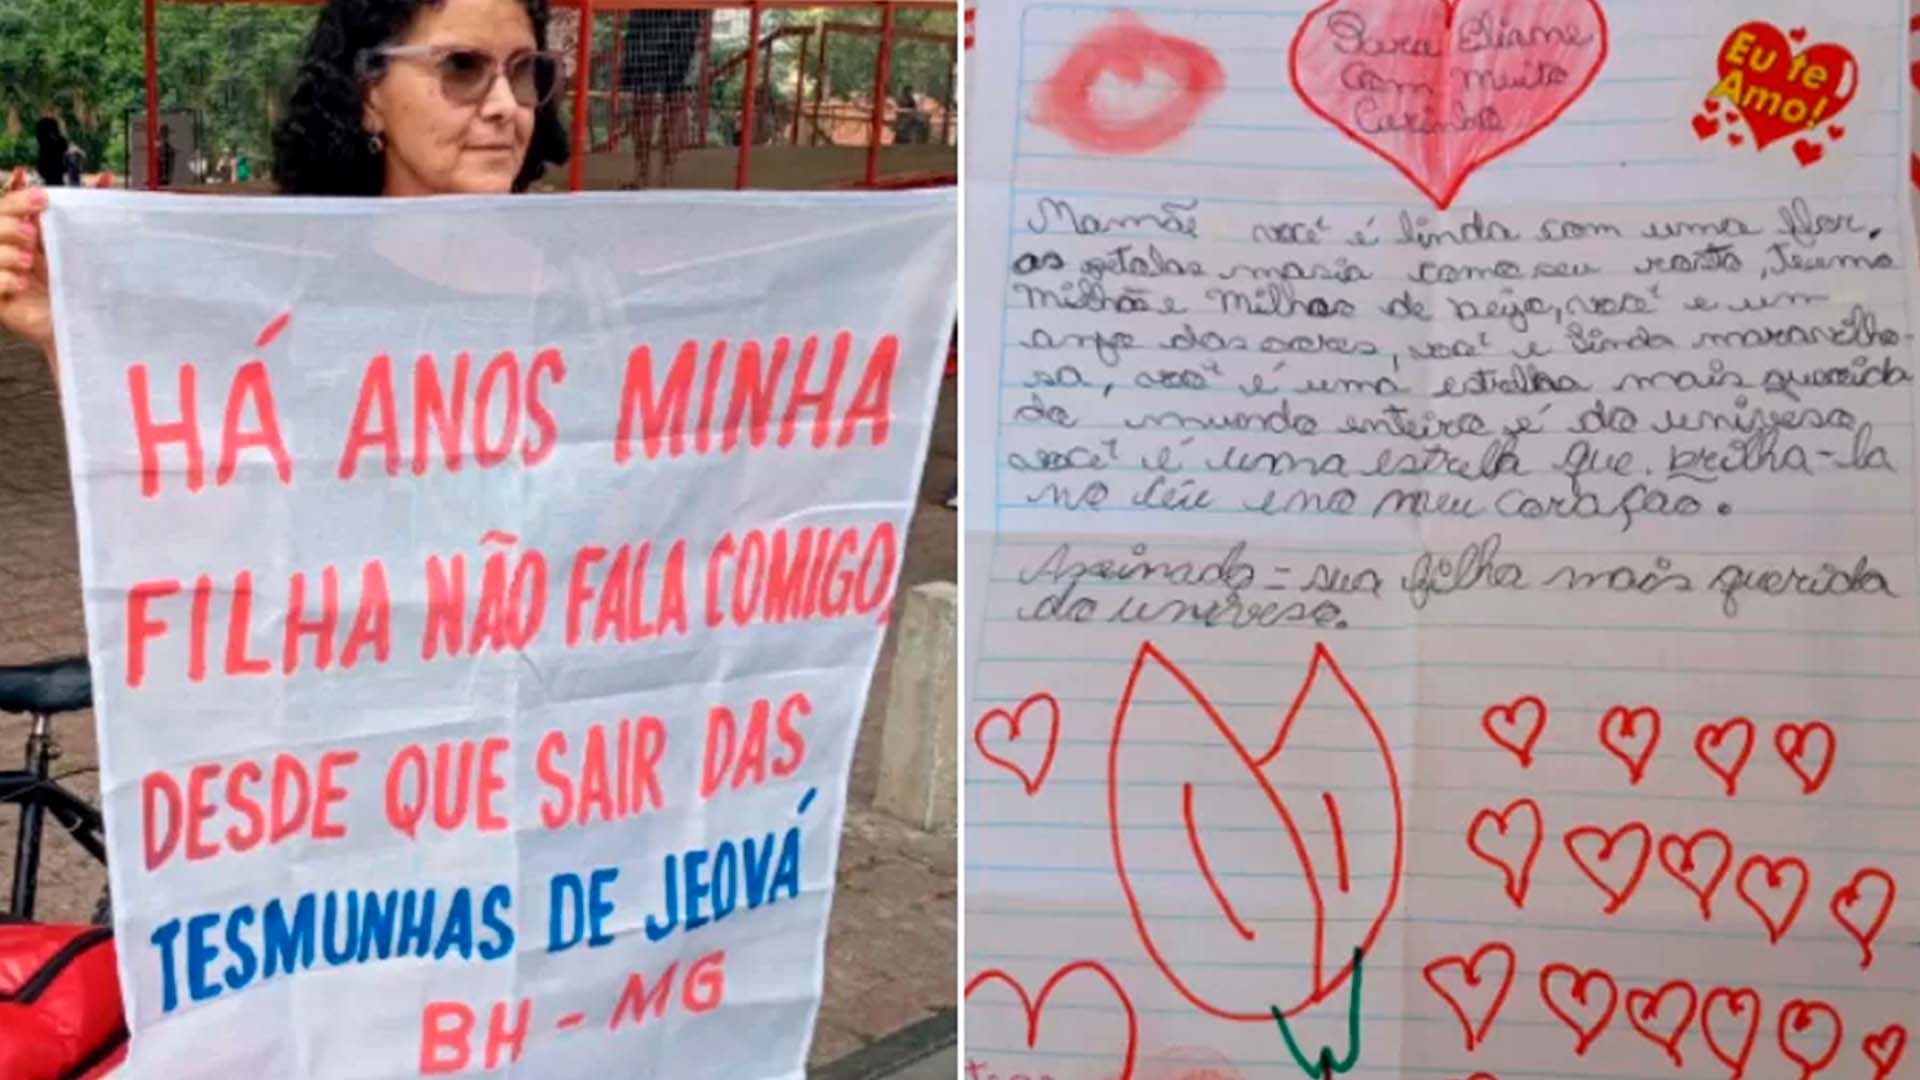 HÁ ANOS MINHA
FILHA NÃO FALA COMIGO,
DESDE QUE SAIR DAS
TESMUNHAS DE JEOVÁ
BH - MG
Para Eliane
com muito
Carinho
Eu te
Amo!
Mamãe você é linda com uma flor,
as petalas masia como seu rosto, Teamo
milhõe e milhão de beijo, você e um
anjo das dores, você e linda maravilho-
sa, você é uma estrelha mais querida
do mundo enteiro é do universo
você é uma estrela que. brilha-la
no céu e no meu corafão.
Assinado = sua filha mais querida
do universo.